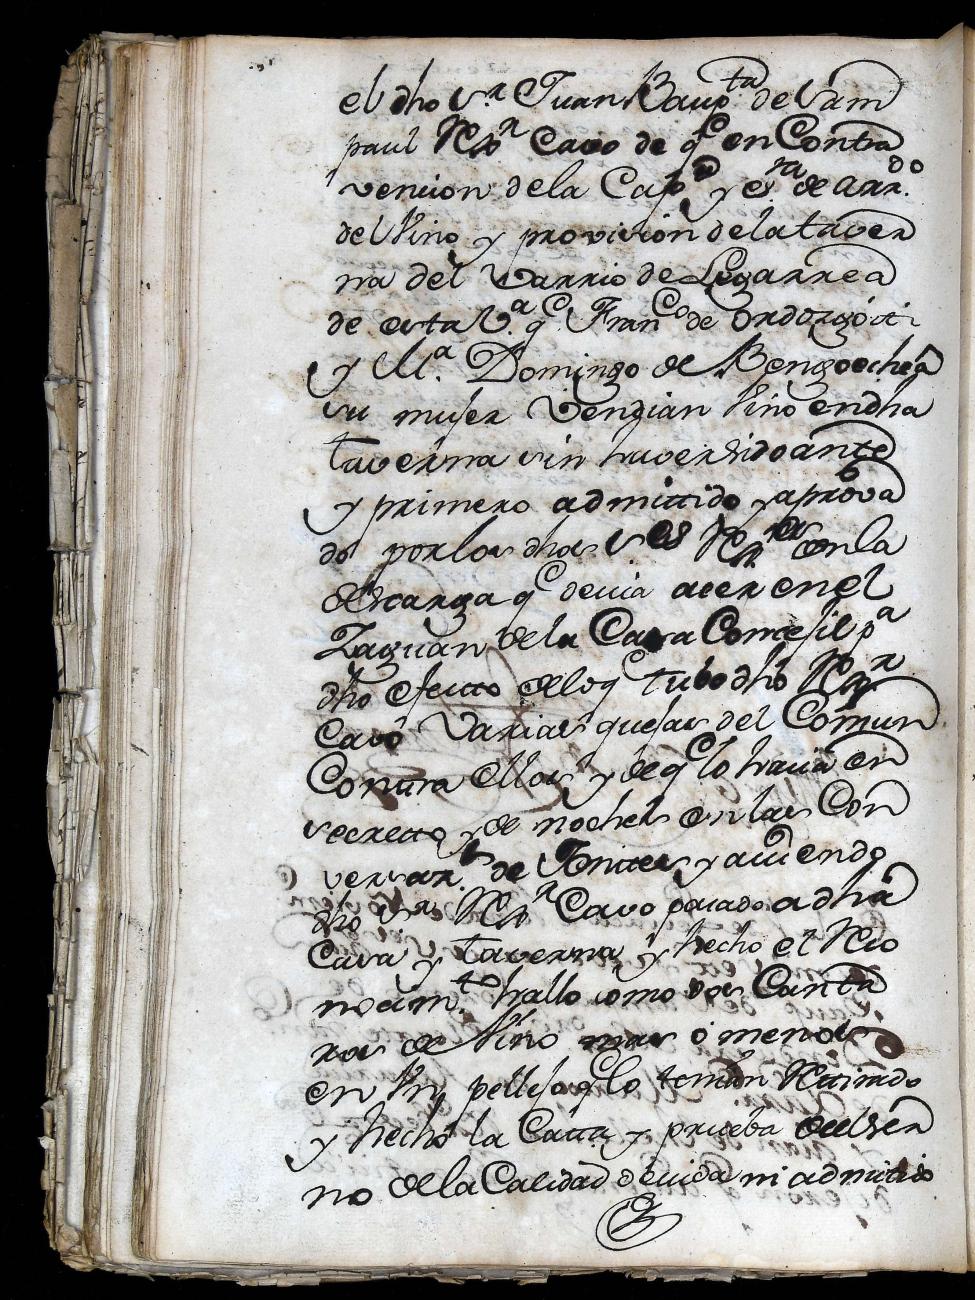 el dho Sr. Juan Baupta de Sam
paul Rxr Cavo de q.e en Contra
vencion dela Cap.n y es.ra de arr.do
del Vino y provicion dela taver
na del varrio de Legarrea
de esta V.a q.e Fran.co de Ordozgoiti
y M.a Domingo de Bengoechea
su mujer Vengian Vino en dha
taverna sin haver sido ante
y primero admittido y aprova
do por los dhos s.es Rx.res en la
descarga q.e devia acer en el
Zaguan de la Casa Concejil p.a
dho efecto de lo q.e tubo dho Rx.r
Cavo Varias quejas del Comun
Contra ellos y de q.e lo hacia en
secreto y de noche en las Con
versas.s de Onices y aviendo
dho s.r Rx.r Cavo pasado a dha
Casa y taverna y hecho el Reco
nocim.to hallo como dos Canta
ras de Vino mas o menos
en Vn pellejo q.e lo tenian Retirado
y hecho la Catta y prueba de el ser
no de la Calidad devida ni admitido